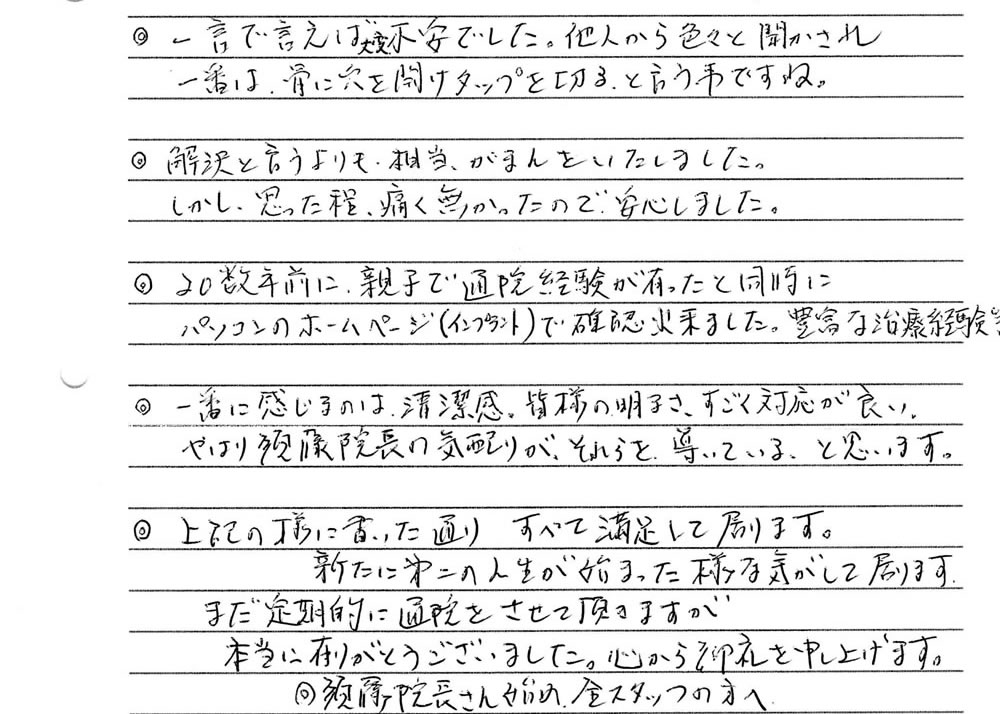 ◎ 一言で言えば大変不安でした。他人から色々と聞かされ
一番は、骨に穴を開けタップを切る、と言う事ですね。
◎ 解決と言うよりも、相当、がまんをいたしました。
しかし、思った程、痛く無かったので、安心しました。
◎ 20数年前に、親子で通院経験が有ったと同時に
パソコンのホームページ(インプラント)で確認出来ました。豊富な治療経験等
◎ 一番に感じるのは、清潔感。皆様の明るさ、すごく対応が良い。
やはり須藤院長の気配りが、それらを、導いている、と思います。
◎ 上記の様に書いた通り すべて満足して居ります。
新たに第二の人生が始まった様な気がして居ります。
まだ定期的に通院をさせて頂きますが
本当に有りがとうございました。心から御礼を申し上げます。
◎須藤院長さん始め、全スタッフの方へ